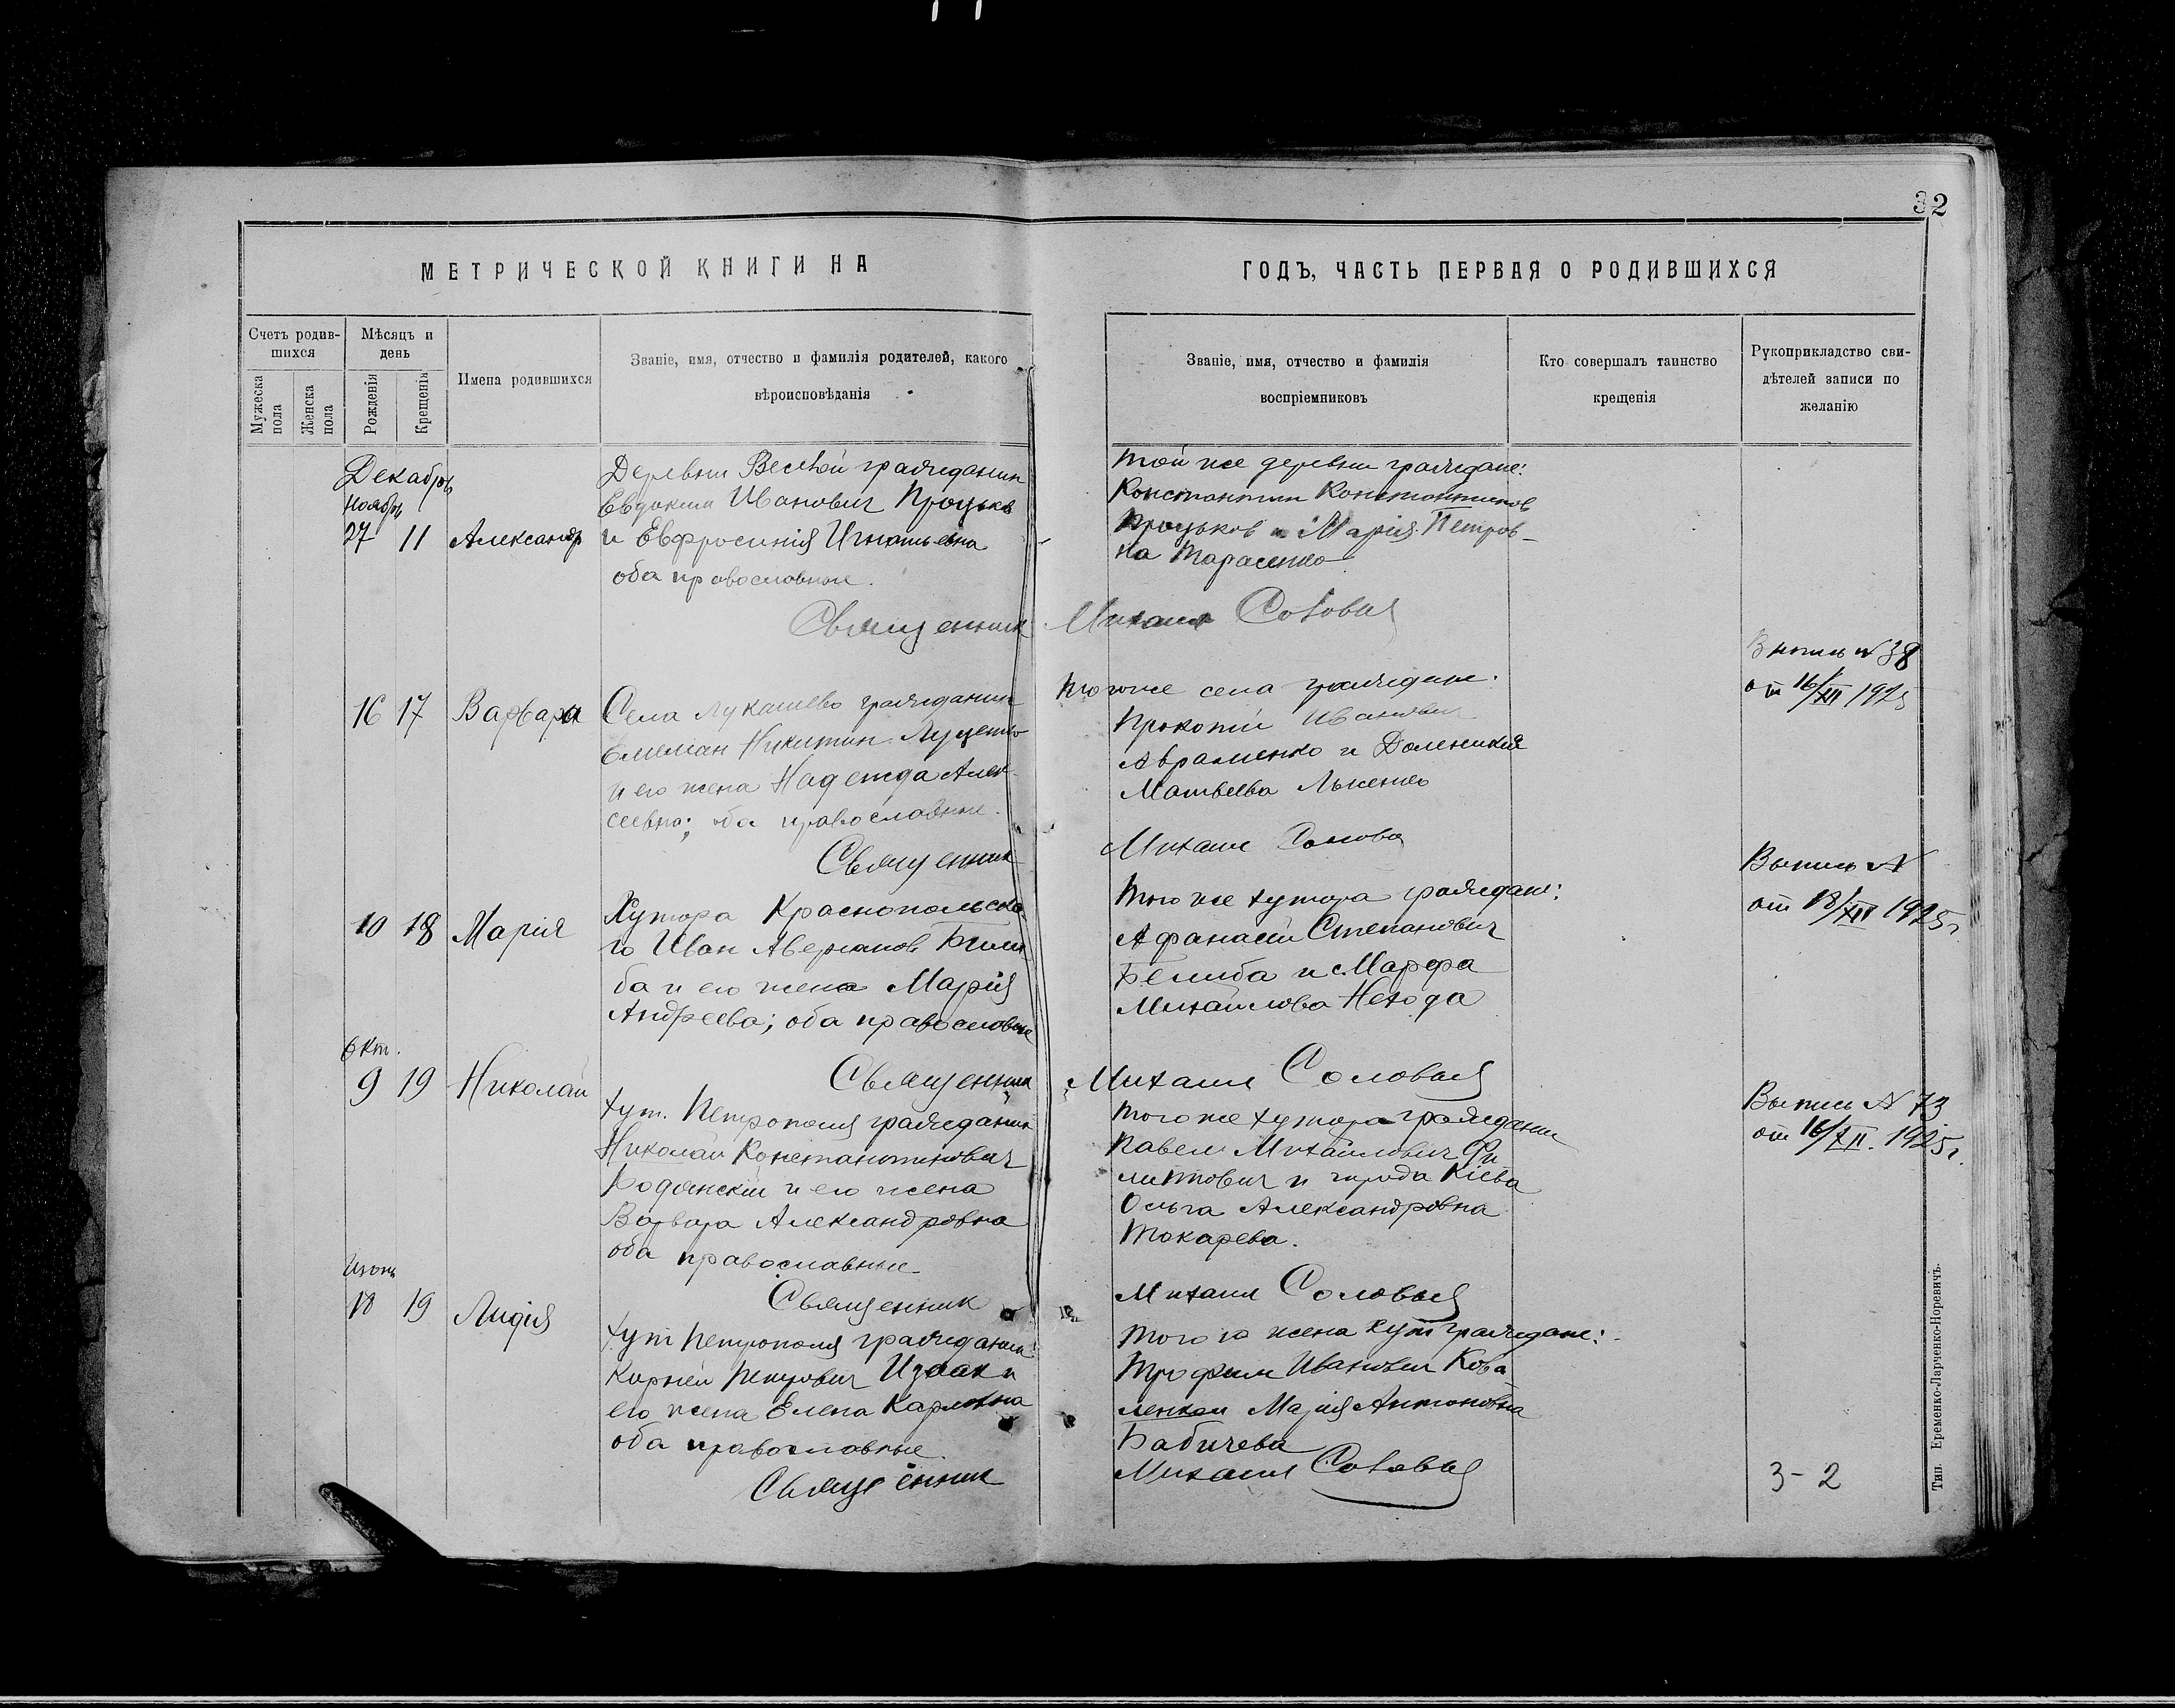 32
МЕТРИЧЕСКОЙ КНИГИ НА
ГОДЪ, ЧАСТЬ ПЕРВАЯ О РОДИВШИХСЯ
Счетъ родив-
шихся
Мужеска
пола
Женска
пола
Мѣсяцъ и
день
Рожденія
Крещенія
Имена родившихся
Званіе, имя, отчество и фамилія родителей, какого
вѣроисповѣданія
Званіе, имя, отчество и фамилія
воспріемниковъ
Кто совершалъ таинство
крещенія
Рукоприкладство сви-
дѣтелей записи по
желанію
Декабрь
Ноябрь
27 11 Александр
Деревни Веселой гражданин
Евдоким Иванович Процьков
и Евфросинія Игнатьевна
оба православные.
Той же деревни граждане:
Константин Константинов
Процьков и Марія Петров-
на Тарасенко
Священник Михаил Соловьев
16 17 Варвара
Села Лукашево гражданин
Емелиан Никитин Луценко
и его жена Надежда Алек-
сеевна; оба православные.
Того же села граждане:
Прокопій Иванович
Авраменко и Домникия
Матвеева Лысенко
Выпись № 38
от 16/XII 1925
Священник
Михаил Соловьев
10 18 Марія
Хутора Краснопольско-
го Иван Аверьянов
ба и его жена Марія
Андреева; оба православные
Того же хутора граждане:
Афанасій Степанович
Белиба и Марфа
Михайлова Негода
Выпись №
от 18/XII 1925 г.
Священник Михаил Соловьев
Окт.
9 19 Николай
хут. Петрополя гражданин
Николай Константинович
Родянскій и его жена
Варвара Александровна
оба православные
Того же хутора гражданин
Павел Михайлович Фи
липпович и города Кіева
Ольга Александровна
Токарева.
Выпись № 73
от 16/XII. 1925 г.
Священник
Михаил Соловьев
Июнь
18 19 Лидія
хут Петрополя гражданин
Корней Петрович Изаак и
его жена Елена Карловна
оба православные
того жена хут граждане:
Трофим Иванович Кова
ленко и Марія Антоновна
Бабичева
Священник
Михаил Соловьев
3-2
Тип. Еременко-Ларченко-Норевичъ.